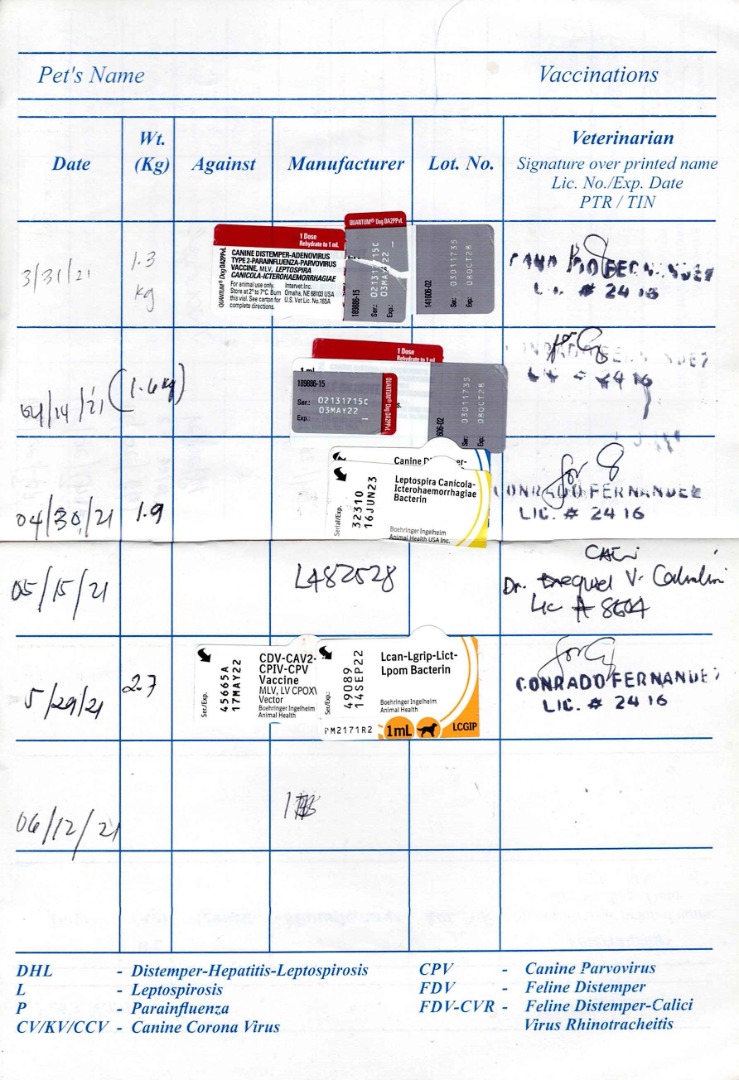 Pet's Name Vaccinations
Date
Wt.
(Kg)
Against
Manufacturer
Lot. No.
Veterinarian
Signature over printed name
Lic. No./Exp. Date
PTR / TIN
3/31/21
1.3
kg
QUANTUM® Dog DA2PPvL
1 Dose
Rehydrate to 1 mL
CANINE DISTEMPER-ADENOVIRUS
TYPE 2-PARAINFLUENZA-PARVOVIRUS
VACCINE, MLV, LEPTOSPIRA
CANICOLA-ICTEROHAEMORRHAGIAE
For animal use only.
Store at 2° to 7°C. Burn
this vial. See carton for
complete directions.
Intervet Inc.
Omaha, NE 68103 USA
U.S. Vet Lic. No. 165A
QUANTUM® Dog DA2PPvL
189886-15
Ser.: 02131715C
Exp.: 03MAY22
141606-02
Ser.: 03011735
Exp.: 08OCT28
FERNANDEZ
LIC. # 2416
04/14/21
(1.6 kg)
1 Dose
Rehydrate to 1 mL
1 mL
189886-15
Ser.: 02131715C
Exp.: 03MAY22
QUANTUM® Dog DA2PPvL
606-02
03011735
08OCT28
for
2416
04/30/21
1.9
Canine
Leptospira Canicola-
Icterohaemorrhagiae
Bacterin
Serial/Exp.
32310
16JUN23
Boehringer Ingelheim
Animal Health USA Inc.
for
CONRADO FERNANDEZ
LIC. # 2416
05/15/21
L482528
Dr.
V.
Lic # 8604
5/29/21
2.7
Ser./Exp.
45665A
17MAY22
CDV-CAV2-
CPIV-CPV
Vaccine
MLV, LV CPOXV
Vector
Boehringer Ingelheim
Animal Health
Ser./Exp.
49089
14SEP22
Lcan-Lgrip-Lict-
Lpom Bacterin
Boehringer Ingelheim
Animal Health
PM2171R2
1mL
LCGIP
for
CONRADO FERNANDEZ
LIC. # 2416
06/12/21
DHL - Distemper-Hepatitis-Leptospirosis
L - Leptospirosis
P - Parainfluenza
CV/KV/CCV - Canine Corona Virus
CPV - Canine Parvovirus
FDV - Feline Distemper
FDV-CVR - Feline Distemper-Calici
Virus Rhinotracheitis